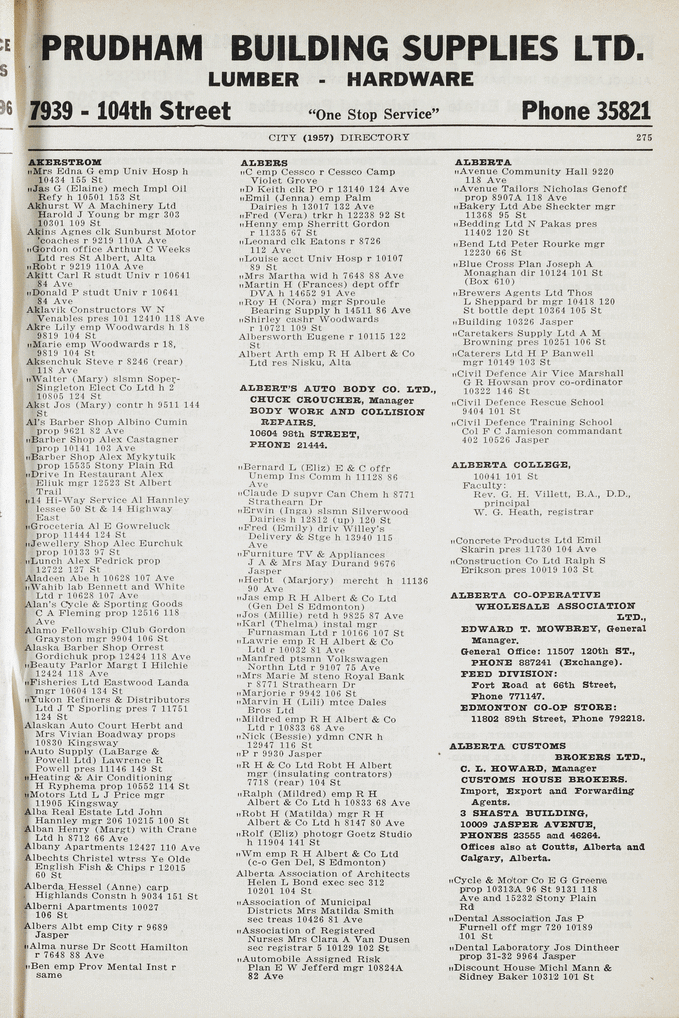 PRUDHAM BUILDING SUPPLIES LTD.
LUMBER - HARDWARE
7939 - 104th Street "One Stop Service" Phone 35821
CITY (1957) DIRECTORY 275
AKERSTROM
"Mrs Edna G emp Univ Hosp h
10434 155 St
"Jas G (Elaine) mech Impl Oil
Refy h 10501 153 St
Akhurst W A Machinery Ltd
Harold J Young br mgr 303
10301 109 St
Akins Agnes clk Sunburst Motor
'coaches r 9219 110A Ave
"Gordon office Arthur C Weeks
Ltd res St Albert, Alta
"Robt r 9219 110A Ave
Akitt Carl R studt Univ r 10641
84 Ave
"Donald P studt Univ r 10641
84 Ave
Aklavik Constructors W N
Venables pres 101 12410 118 Ave
Akre Lily emp Woodwards h 18
9819 104 St
"Marie emp Woodwards r 18,
9819 104 St
Aksenchuk Steve r 8246 (rear)
118 Ave
"Walter (Mary) slsmn Soper-
Singleton Elect Co Ltd h 2
10805 124 St
Akst Jos (Mary) contr h 9511 144
St
Al's Barber Shop Albino Cumin
prop 9621 82 Ave
"Barber Shop Alex Castagner
prop 10141 103 Ave
"Barber Shop Alex Mykytuik
prop 15535 Stony Plain Rd
"Drive In Restaurant Alex
Eliuk mgr 12523 St Albert
Trail
"14 Hi-Way Service Al Hannley
lessee 50 St & 14 Highway
East
"Groceteria Al E Gowreluck
prop 11444 124 St
"Jewellery Shop Alec Eurchuk
prop 10133 97 St
"Lunch Alex Fedrick prop
12722 127 St
Aladeen Abe h 10628 107 Ave
"Wahib lab Bennett and White
Ltd r 10628 107 Ave
Alan's Cycle & Sporting Goods
C A Fleming prop 12516 118
Ave
Alamo Fellowship Club Gordon
Grayston mgr 9904 106 St
Alaska Barber Shop Orrest
Gordichuk prop 12424 118 Ave
"Beauty Parlor Margt I Hilchie
12424 118 Ave
"Fisheries Ltd Eastwood Landa
mgr 10604 134 St
"Yukon Refiners & Distributors
Ltd J T Sporling pres 7 11751
124 St
Alaskan Auto Court Herbt and
Mrs Vivian Boadway props
10830 Kingsway
"Auto Supply (LaBarge &
Powell Ltd) Lawrence R
Powell pres 11146 149 St
"Heating & Air Conditioning
H Ryphema prop 10552 114 St
"Motors Ltd L J Price mgr
11905 Kingsway
Alba Real Estate Ltd John
Hannley mgr 206 10215 100 St
Alban Henry (Margt) with Crane
Ltd h 8712 66 Ave
Albany Apartments 12427 110 Ave
Albechts Christel wtrss Ye Olde
English Fish & Chips r 12015
60 St
Alberda Hessel (Anne) carp
Highlands Constn h 9034 151 St
Alberni Apartments 10027
106 St
Albers Albt emp City r 9689
Jasper
"Alma nurse Dr Scott Hamilton
r 7648 88 Ave
"Ben emp Prov Mental Inst r
same
ALBERS
"C emp Cessco r Cessco Camp
Violet Grove
"D Keith clk PO r 13140 124 Ave
"Emil (Jenny) emp Palm
Dairies h 13017 132 Ave
"Fred (Vera) trkr h 12238 92 St
"Henny emp Sherritt Gordon
r 11335 67 St
"Leonard clk Eatons r 8726
112 Ave
"Louise acct Univ Hosp r 10107
89 St
"Mrs Martha wid h 7648 88 Ave
"Martin H (Frances) dept offr
DVA h 14652 91 Ave
"Roy H (Nora) mgr Sproule
Bearing Supply h 14511 86 Ave
"Shirley cashr Woodwards
r 10721 109 St
Albersworth Eugene r 10115 122
St
Albert Arth emp R H Albert & Co
Ltd res Nisku, Alta
ALBERT'S AUTO BODY CO. LTD.,
CHUCK CROUCHER, Manager
BODY WORK AND COLLISION
REPAIRS.
10604 98th STREET,
PHONE 21444.
"Bernard L (Eliz) E & C offr
Unemp Ins Comm h 11128 86
Ave
"Claude D supvr Can Chem h 8771
Strathearn Dr
"Erwin (Inga) slsmn Silverwood
Dairies h 12812 (up) 120 St
"Fred (Emily) driv Willey's
Delivery & Stge h 13940 115
Ave
"Furniture TV & Appliances
J A & Mrs May Durand 9676
Jasper
"Herbt (Marjory) mercht h 11136
90 Ave
"Jas emp R H Albert & Co Ltd
(Gen Del S Edmonton)
"Jos (Millie) retd h 9825 87 Ave
"Karl (Thelma) instal mgr
Furnasman Ltd r 10166 107 St
"Lawrie emp R H Albert & Co
Ltd r 10032 81 Ave
"Manfred ptsmn Volkswagen
Northn Ltd r 9107 75 Ave
"Mrs Marie M steno Royal Bank
r 8771 Strathearn Dr
"Marjorie r 9942 106 St
"Marvin H (Lili) mtce Dales
Bros Ltd
"Mildred emp R H Albert & Co
Ltd r 10833 68 Ave
"Nick (Bessie) ydmn CNR h
12947 116 St
"P r 9930 Jasper
"R H & Co Ltd Robt H Albert
mgr (insulating contrators)
7718 (rear) 104 St
"Ralph (Mildred) emp R H
Albert & Co Ltd h 10833 68 Ave
"Robt H (Matilda) mgr R H
Albert & Co Ltd h 8147 80 Ave
"Rolf (Eliz) photogr Goetz Studio
h 11904 141 St
"Wm emp R H Albert & Co Ltd
(c-o Gen Del, S Edmonton)
Alberta Association of Architects
Helen L Bond exec sec 312
10201 104 St
"Association of Municipal
Districts Mrs Matilda Smith
sec treas 10426 81 Ave
"Association of Registered
Nurses Mrs Clara A Van Dusen
sec registrar 5 10129 102 St
"Automobile Assigned Risk
Plan E W Jefferd mgr 10824A
82 Ave
ALBERTA
"Avenue Community Hall 9220
118 Ave
"Avenue Tailors Nicholas Genoff
prop 8907A 118 Ave
"Bakery Ltd Abe Sheckter mgr
11368 95 St
"Bedding Ltd N Pakas pres
11402 120 St
"Bend Ltd Peter Rourke mgr
12230 66 St
"Blue Cross Plan Joseph A
Monaghan dir 10124 101 St
(Box 610)
"Brewers Agents Ltd Thos
L Sheppard br mgr 10418 120
St bottle dept 10364 105 St
"Building 10326 Jasper
"Caretakers Supply Ltd A M
Browning pres 10251 106 St
"Caterers Ltd H P Banwell
mgr 10149 103 St
"Civil Defence Air Vice Marshall
G R Howsan prov co-ordinator
10322 146 St
"Civil Defence Rescue School
9404 101 St
"Civil Defence Training School
Col F C Jamieson commandant
402 10526 Jasper
ALBERTA COLLEGE,
10041 101 St
Faculty:
Rev. G. H. Villett, B.A., D.D.,
principal
W. G. Heath, registrar
"Concrete Products Ltd Emil
Skarin pres 11730 104 Ave
"Construction Co Ltd Ralph S
Erikson pres 10019 103 St
ALBERTA CO-OPERATIVE
WHOLESALE ASSOCIATION
LTD.,
EDWARD T. MOWBREY, General
Manager.
General Office: 11507 120th ST.,
PHONE 887241 (Exchange).
FEED DIVISION:
Fort Road at 66th Street,
Phone 771147.
EDMONTON CO-OP STORE:
11802 89th Street, Phone 792218.
ALBERTA CUSTOMS
BROKERS LTD.,
C. L. HOWARD, Manager
CUSTOMS HOUSE BROKERS.
Import, Export and Forwarding
Agents.
3 SHASTA BUILDING,
10009 JASPER AVENUE,
PHONES 23555 and 46264.
Offices also at Coutts, Alberta and
Calgary, Alberta.
"Cycle & Motor Co E G Greene
prop 10313A 96 St 9131 118
Ave and 15232 Stony Plain
Rd
"Dental Association Jas P
Furnell off mgr 720 10189
101 St
"Dental Laboratory Jos Dintheer
prop 31-32 9964 Jasper
"Discount House Michl Mann &
Sidney Baker 10312 101 St